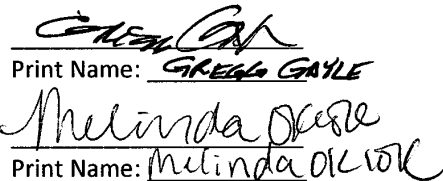 Gregg Gayle
Print Name: GREGG GAYLE
Melinda Okrok
Print Name: Melinda OKrok